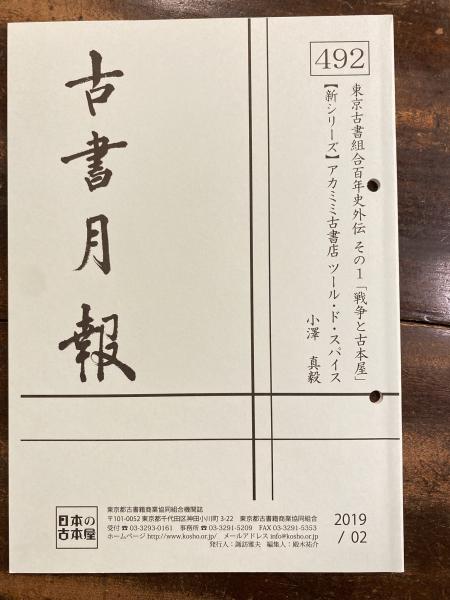 492
東京古書組合百年史外伝 その1「戦争と古本屋」
【新シリーズ】アカミミ古書店 ツール・ド・スパイス
小澤 真毅
古書月報
日本の
古本屋
東京都古書籍商業協同組合機関誌
〒101-0052 東京都千代田区神田小川町 3-22 東京都古書籍商業協同組合
受付 ☎ 03-3293-0161 事務所 ☎ 03-3291-5209 FAX 03-3291-5353
ホームページ http://www.kosho.or.jp/ メールアドレス info@kosho.or.jp
発行人：諏訪雅夫 編集人：殿木祐介
2019
/ 02